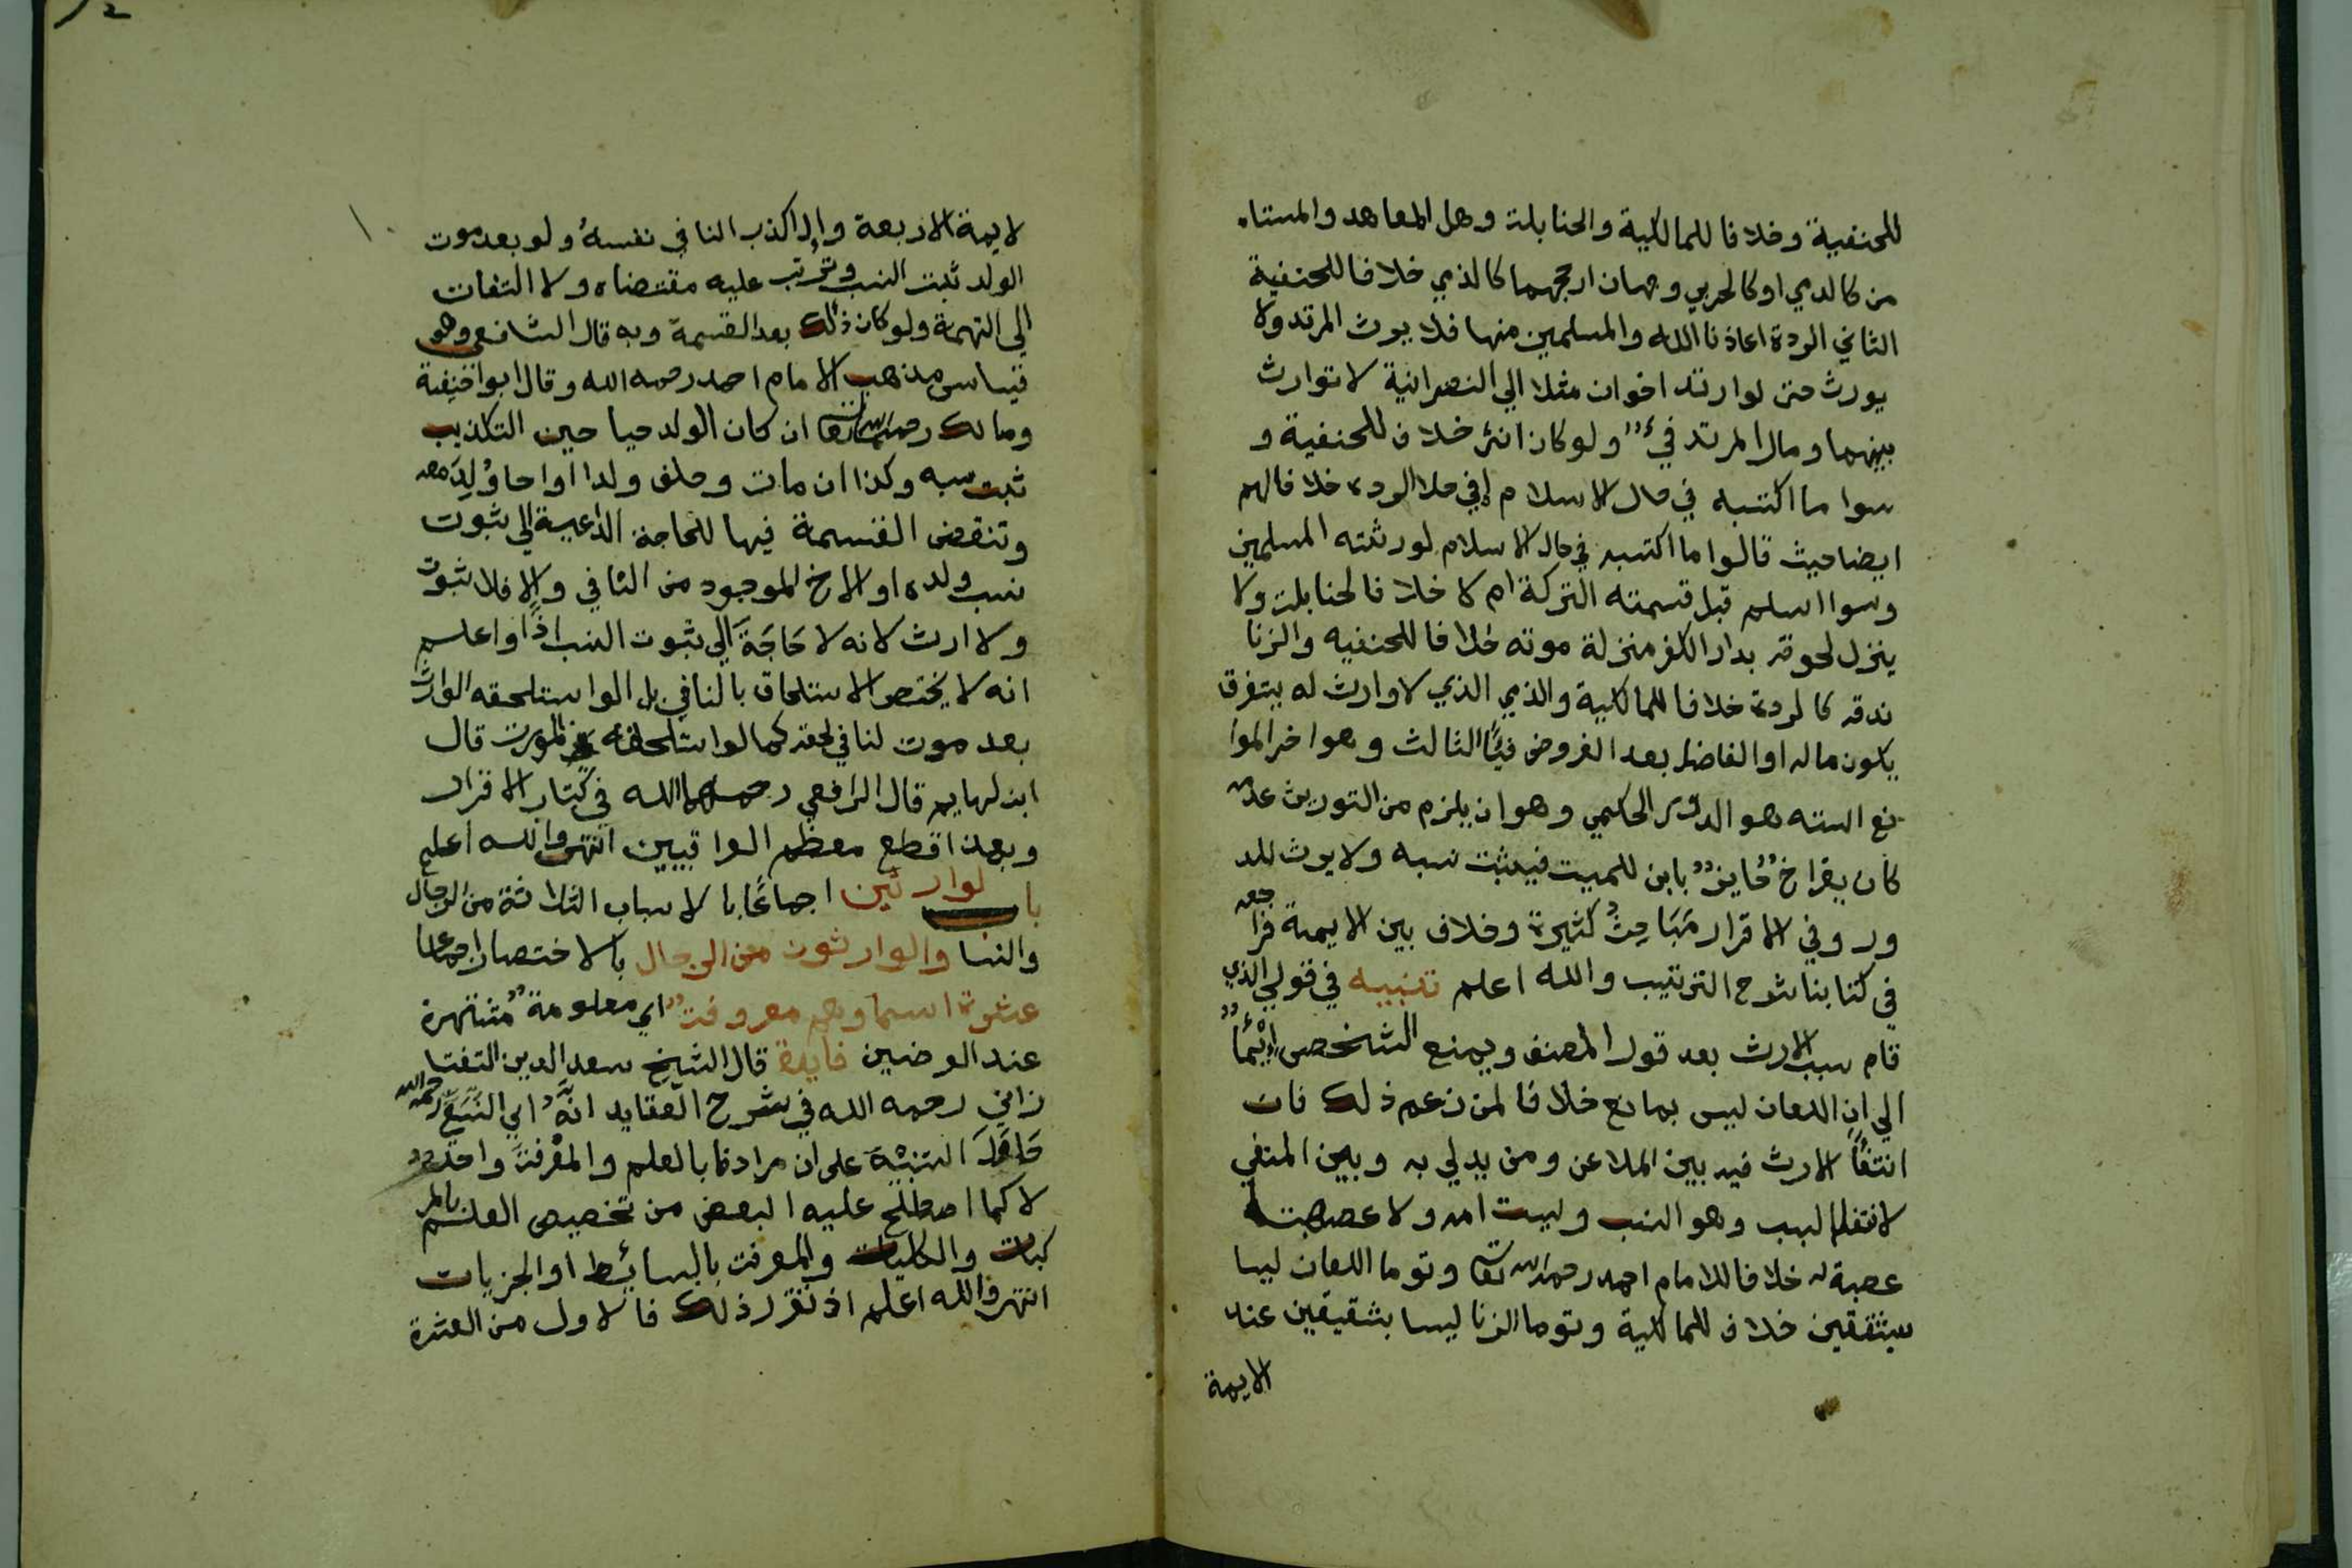 للحنفية وخلافا للمالكية والحنابلة وهل المعاهد والمستا
من كالذمي او كالحربي وجهان ارجحهما كالذمي خلافا للحنفية
الثاني الردة اعاذنا الله والمسلمين منها فلا يرث المرتد ولا
يورث حتى لو ارتد اخوان مثلا الي النصرانية لا توارث
بينهما ومال المرتد فيء ولو كان انثى خلاف للحنفية و
سوا ما اكتسبه في حال الاسلام او في حال الردة خلافا لهم
ايضا حيث قالوا ما اكتسبه في حال الاسلام لورثته المسلمين
وسوا اسلم قبل قسمته التركة ام لا خلافا لحنابلة ولا
ينزل لحوقه بدار الكفر منزلة موته خلافا للحنفيه والزنا
ندقه كالردة خلافا للمالكية والذمي الذي لا وارث له يتفرق
يكون ماله او الفاضل بعد الفروض فيئًا الثالث وهو اخر الموا
نع السته هو الدور الحكمي وهو ان يلزم من التوريث عدمه
كان يقر اخ حايز بابن للميت فيثبت نسبه ولا يرث للد
ور وفي الاقرار مباحث كثيرة وخلاف بين الايمة فراجعه
في كتابنا شرح الترتيب والله اعلم تنبيه في قولي الذي
قام سبب الارث بعد قول المصنف ويمنع الشخص إيمًا
الي ان اللعان ليس بمانع خلافا لمن زعم ذلك فان
انتفأ الارث فيه بين الملاعن ومن يدلي به وبين المنفي
لانتفا السبب وهو النسب وليست امه ولا عصبتها
عصبة له خلافا للامام احمد رحمه الله تعا وتوما اللعان ليسا
بشقيقين خلاف للمالكية وتوما الزنا ليسا بشقيقين عند
الايمة
لايمة الاربعة واذا كذب النافي نفسه ولو بعد موت
الولد ثبت النسب وترتب عليه مقتضاه ولا التفات
الي التهمة ولو كان ذلك بعد القسمة وبه قال الشافعي وهو
قياس مذهب الامام احمد رحمه الله وقال ابو احنيفة
ومالك رحمهما الله تعا ان كان الولد حيا حين التكذيب
ثبت نسبه وكذا ان مات وخلف ولدا او اخا وُلِدَ معه
وتنقض القسمة فيها للحاجة الداعية الي ثبوت
نسب ولده او الاخ الموجود من الثاني والا فلا ثبوت
ولا ارث لانه لا حَاجَةَ الي ثبوت النسب اذًا واعلم
انه لا يختص الاستلحاق بالنافي بل الو استلحقه الوارث
بعد موت لنا في لحقه كما لو استلحقه المورث قال
ابن لهايم قال الرافعي رحمهما الله في كتاب الاقرار
وبهذا قطع معظم العراقيين انتهى والله اعلم
باب لوارثين اجماعًا بالاسباب الثلاثة من الرجال
والنسا والوارثون من الرجال بالاختصار اجماعا
عشرة اسما وهم معروفة اي معلومة مشتهرة
عند الفرضيين فايدة قال الشيخ سعد الدين التفتا
زاني رحمه الله في شرح العقايد انه اي النسفي رحمه الله
حَاوَلَ التنبيه على ان مرادنا بالعلم والمعْرفة واحد
لا كما اصطلح عليه البعض من تخصيص العلم بالمر
كبات والكليات والمعرفة بالبسائط او الجزيات
انتهى والله اعلم اذ تقرر ذلك فالاول من العشرة